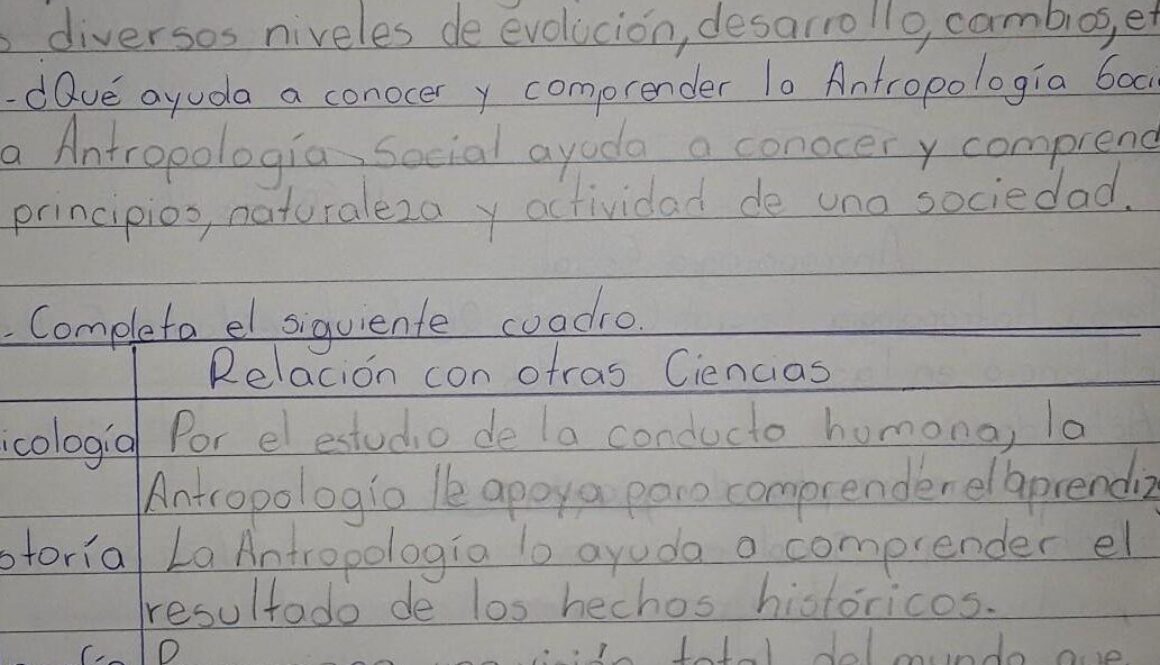 diversos niveles de evolución, desarrollo, cambios, et
-¿Qué ayuda a conocer y comprender la Antropología Soci
a Antropología Social ayuda a conocer y comprend
principios, naturaleza y actividad de una sociedad.
- Completa el siguiente cuadro.
Relación con otras Ciencias
icología Por el estudio de la conducta humana, la
Antropología le apoya para comprender el aprendiz
storía La Antropología lo ayuda a comprender el
resultado de los hechos históricos.
total del mundo que